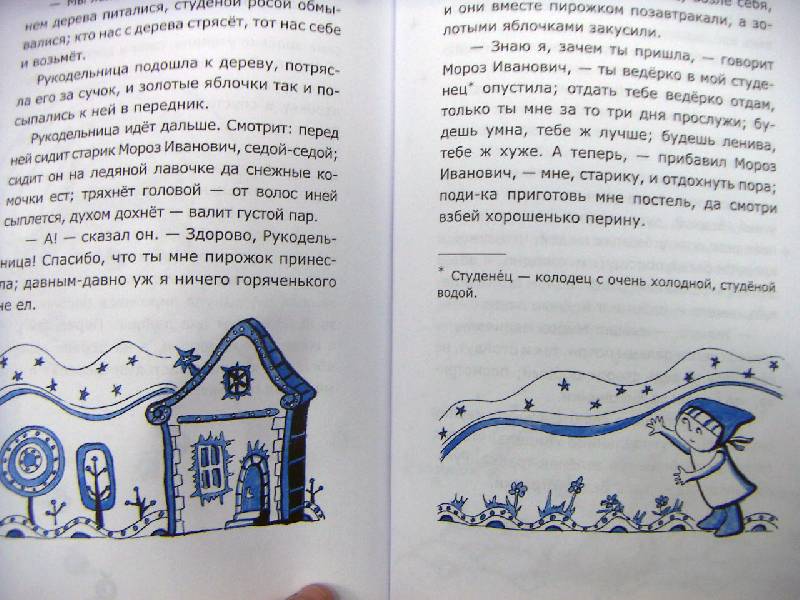 — Мы
нем дерева питалися, студёной росой обмы-
валися; кто нас с дерева стрясёт, тот нас себе
и возьмёт.
Рукодельница подошла к дереву, потряс-
ла его за сучок, и золотые яблочки так и по-
сыпались к ней в передник.
Рукодельница идёт дальше. Смотрит: перед
ней сидит старик Мороз Иванович, седой-седой;
сидит он на ледяной лавочке да снежные ко-
мочки ест; тряхнёт головой — от волос иней
сыплется, духом дохнёт — валит густой пар.
— А! — сказал он. — Здорово, Рукодель-
ница! Спасибо, что ты мне пирожок принес-
ла; давным-давно уж я ничего горяченького
не ел.
возле себя,
и они вместе пирожком позавтракали, а зо-
лотыми яблочками закусили.
— Знаю я, зачем ты пришла, — говорит
Мороз Иванович, — ты ведёрко в мой студе-
нец* опустила; отдать тебе ведёрко отдам,
только ты мне за то три дня прослужи; бу-
дешь умна, тебе ж лучше; будешь ленива,
тебе ж хуже. А теперь, — прибавил Мороз
Иванович, — мне, старику, и отдохнуть пора;
поди-ка приготовь мне постель, да смотри
взбей хорошенько перину.
* Студене́ц — колодец с очень холодной, студёной
водой.